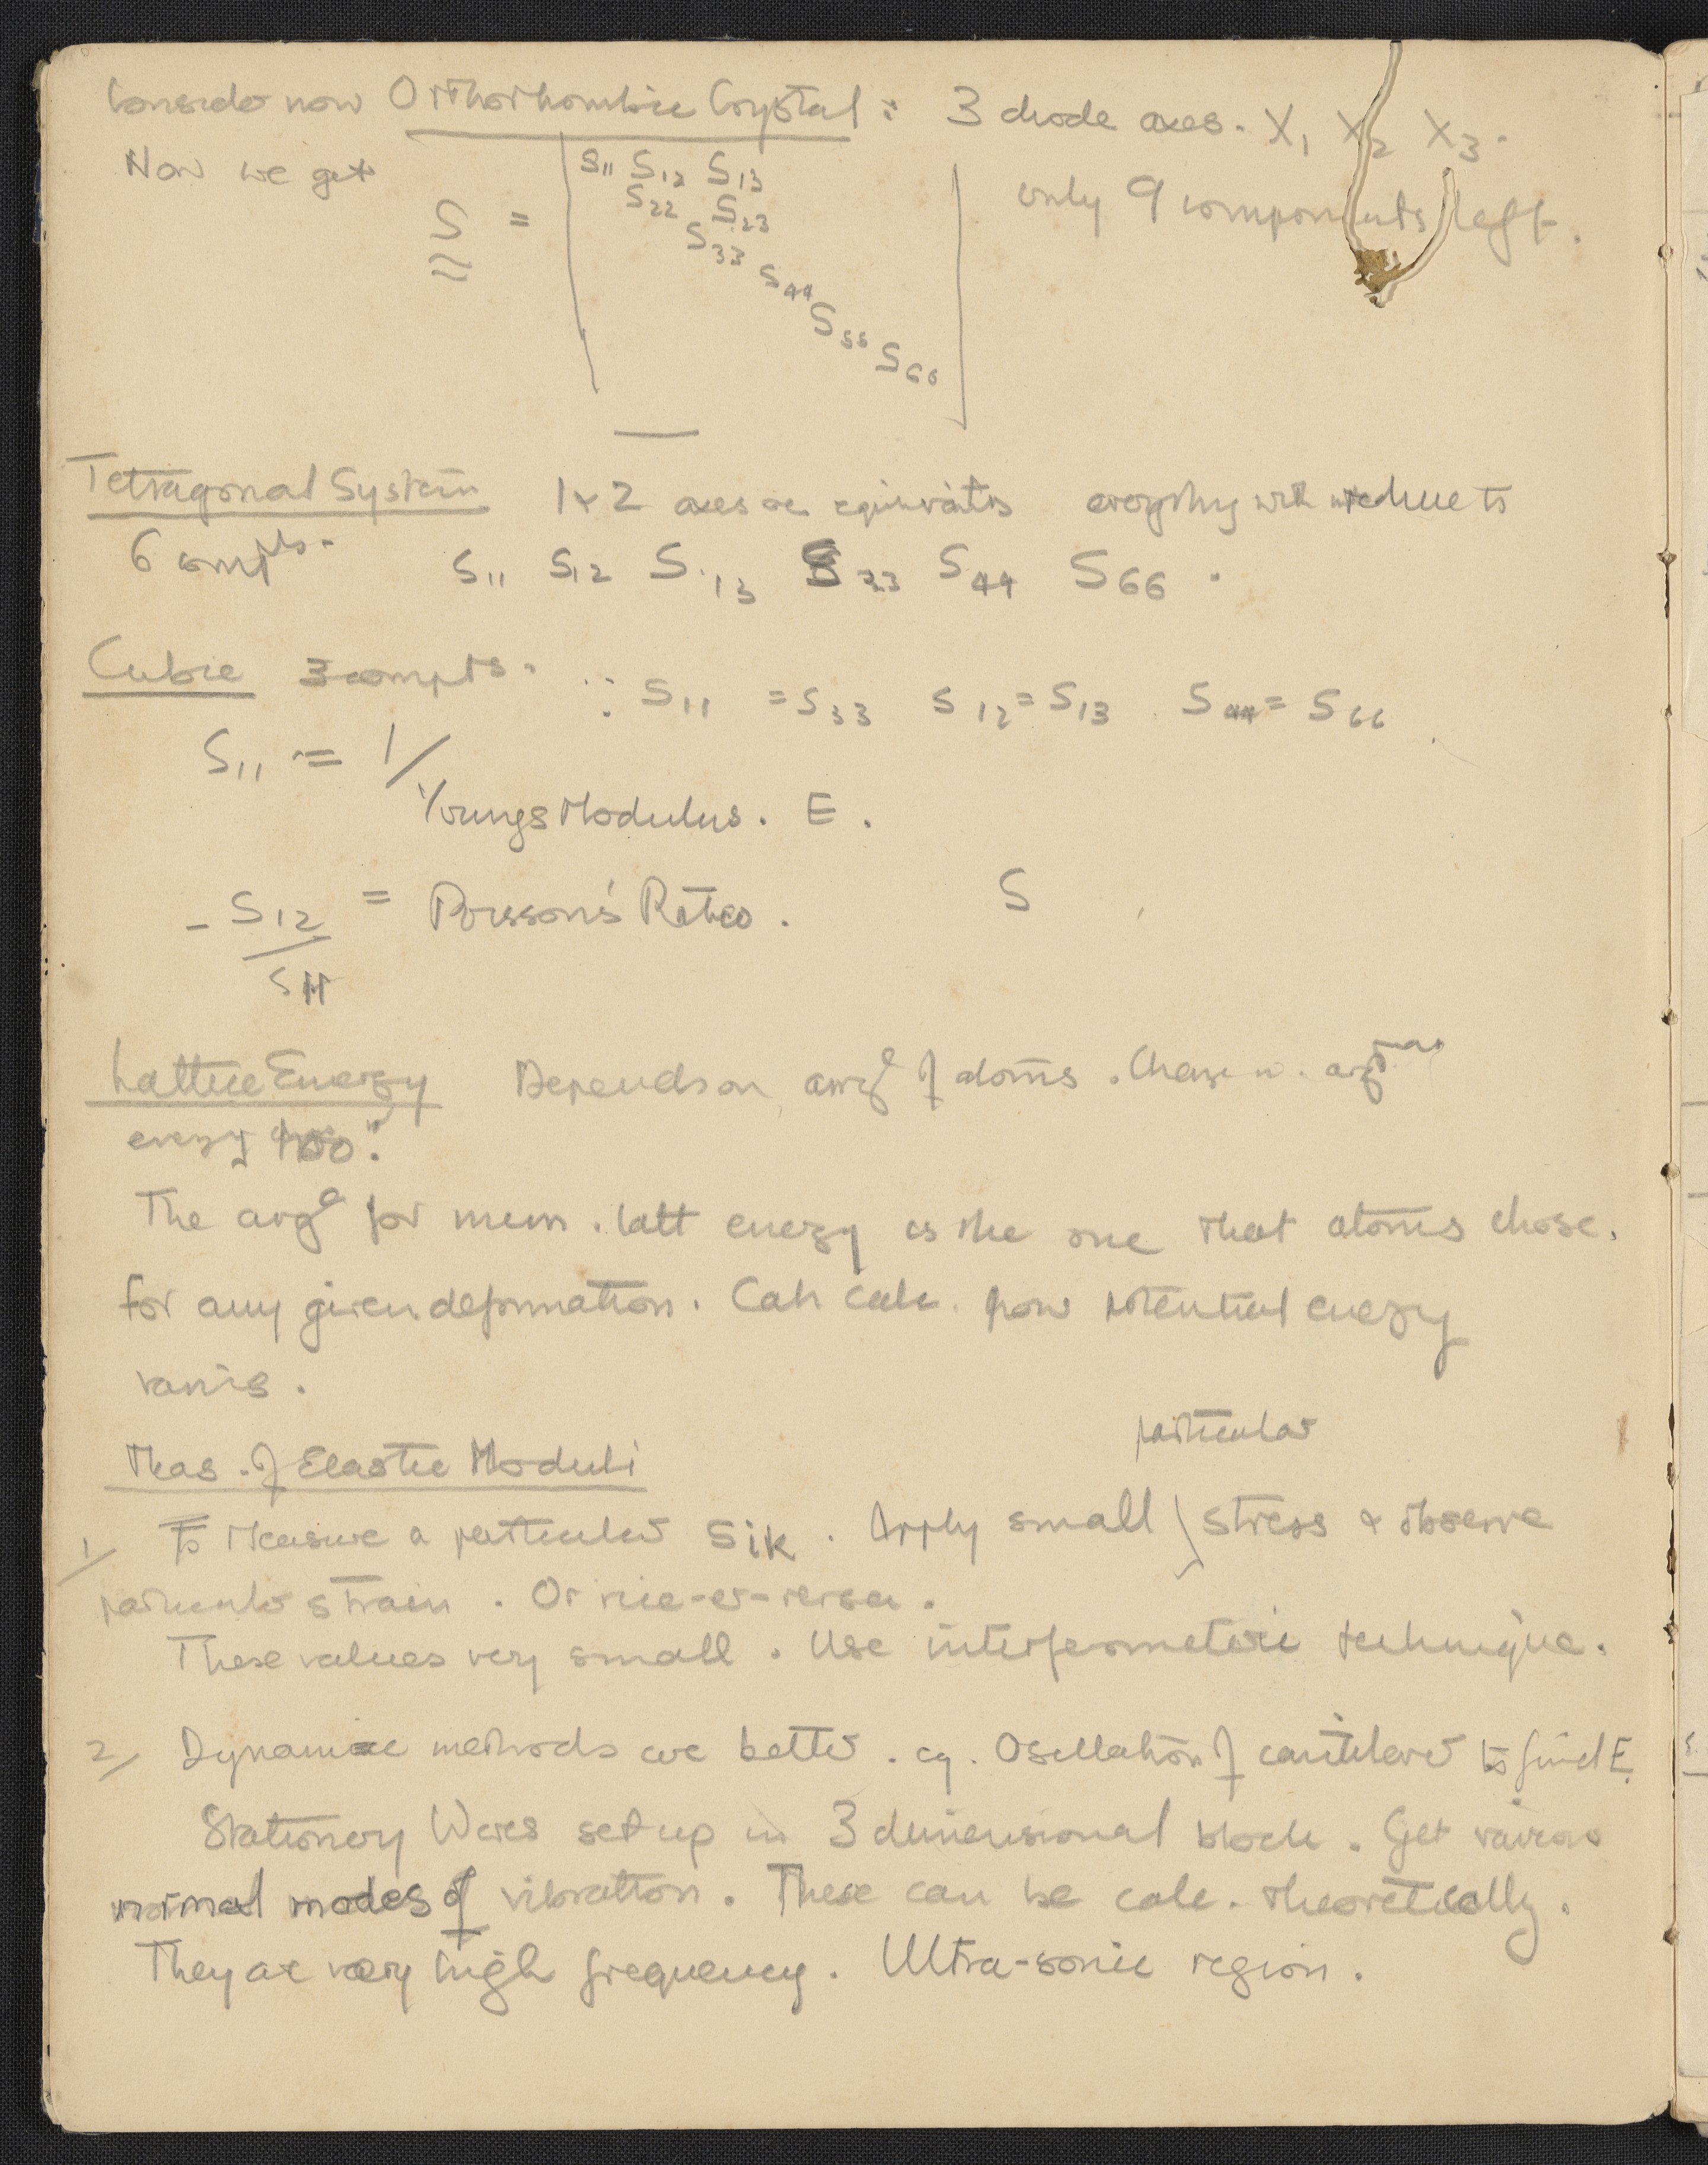 Consider now Orthorhombic Crystal : 3 diade axes. X1 X2 X3.
Now we get
S11 S12 S13
only 9 components left.
S22 S23
S =
S33
S44
S55
S66
Tetragonal System 1 & 2 axes are will reduce to
6 compts. S11 S12 S13 S33 S44 S66 .
Cubic 3 compts. ∵ S11 = S33 S12 = S13 S44 = S66
S11 = 1/
Youngs Modulus. E.
- S12 = Poisson's Ratio. S
S11
Lattice Energy Depends on of atoms.
energy too.
The arrgt for mum. latt energy is the one that atoms chose.
For any given deformation. Can calc. how potential energy
varies.
particular
Meas. of Elastic Moduli
1/ To Measure a particular Sik . Apply small stress & observe
particular strain . Or vice-er-versa.
These values very small . Use interferometric technique.
2/ Dynamic methods are better . eg . Oscillation of cantilever to find E.
Stationary Waves set up in 3 dimensional block . Get various
normal modes of vibration . These can be calc. theoretically.
They are very high frequency . Ultra-sonic region.